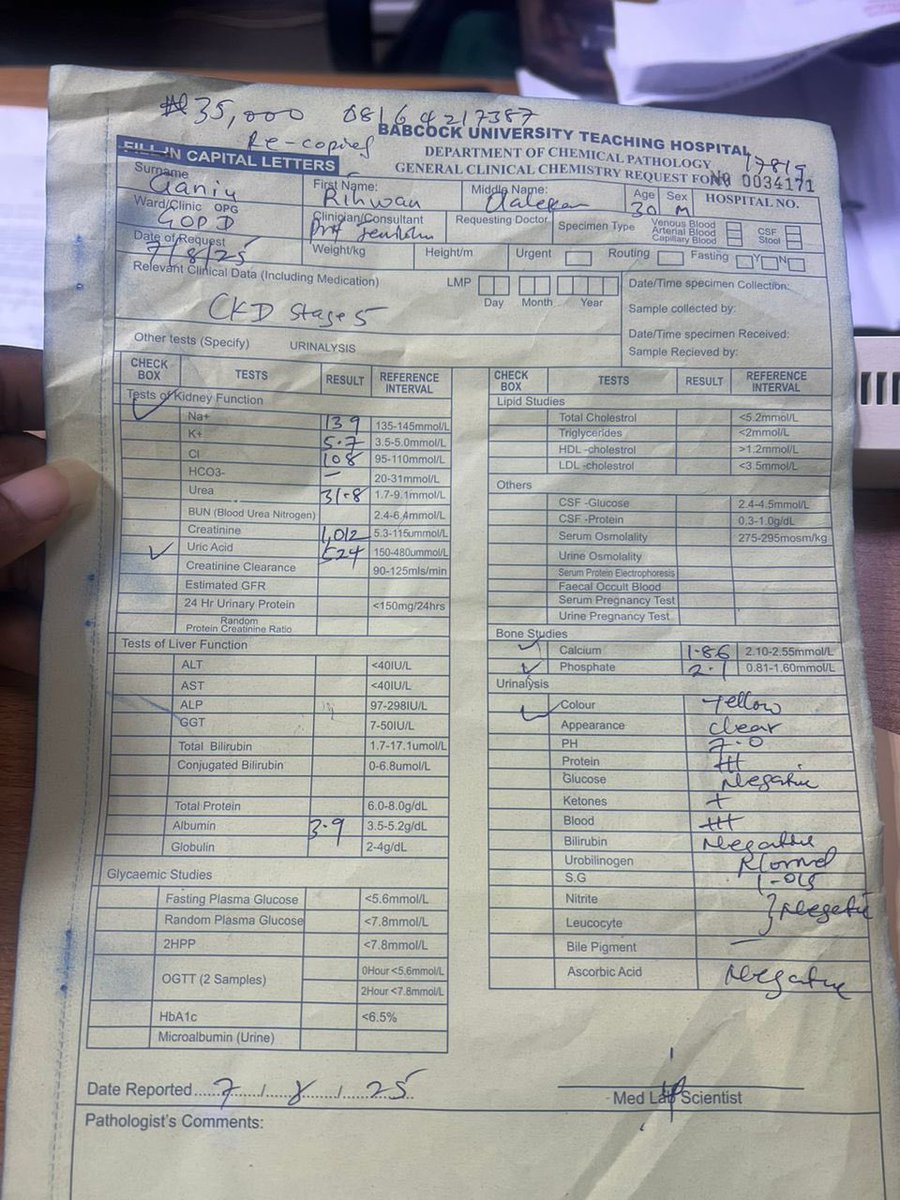 ₦35,000 08164217387
Re-copied
BABCOCK UNIVERSITY TEACHING HOSPITAL
DEPARTMENT OF CHEMICAL PATHOLOGY
GENERAL CLINICAL CHEMISTRY REQUEST FORM
17819
No 0034171
FILL IN CAPITAL LETTERS
Surname Ganiu
First Name: Rihwan
Middle Name:
Age 30
Sex M
HOSPITAL NO.
Ward/Clinic OPG GOPD
Clinician/Consultant Prof
Requesting Doctor
Specimen Type
Venous Blood
Arterial Blood
Capillary Blood
CSF
Stool
Date of Request 7/8/25
Weight/kg
Height/m
Urgent
Routing
Fasting Y N
Relevant Clinical Data (Including Medication)
LMP
Day Month Year
CKD Stage 5
Date/Time specimen Collection:
Sample collected by:
Date/Time specimen Received:
Sample Recieved by:
Other tests (Specify) URINALYSIS
CHECK BOX TESTS RESULT REFERENCE INTERVAL
Tests of Kidney Function
Na+ 139 135-145mmol/L
K+ 5.7 3.5-5.0mmol/L
Cl 108 95-110mmol/L
HCO3- – 20-31mmol/L
Urea 31.8 1.7-9.1mmol/L
BUN (Blood Urea Nitrogen) 2.4-6.4mmol/L
Creatinine 1,012 5.3-115ummol/L
Uric Acid 524 150-480ummol/L
Creatinine Clearance 90-125mls/min
Estimated GFR
24 Hr Urinary Protein <150mg/24hrs
Random
Protein Creatinine Ratio
Tests of Liver Function
ALT <40IU/L
AST <40IU/L
ALP 97-298IU/L
GGT 7-50IU/L
Total Bilirubin 1.7-17.1umol/L
Conjugated Bilirubin 0-6.8umol/L
Total Protein 6.0-8.0g/dL
Albumin 3.9 3.5-5.2g/dL
Globulin 2-4g/dL
Glycaemic Studies
Fasting Plasma Glucose <5.6mmol/L
Random Plasma Glucose <7.8mmol/L
2HPP <7.8mmol/L
OGTT (2 Samples) 0Hour <5.6mmol/L
2Hour <7.8mmol/L
HbA1c <6.5%
Microalbumin (Urine)
CHECK BOX TESTS RESULT REFERENCE INTERVAL
Lipid Studies
Total Cholestrol <5.2mmol/L
Triglycerides <2mmol/L
HDL -cholestrol >1.2mmol/L
LDL -cholestrol <3.5mmol/L
Others
CSF -Glucose 2.4-4.5mmol/L
CSF -Protein 0.3-1.0g/dL
Serum Osmolality 275-295mosm/kg
Urine Osmolality
Serum Protein Electrophoresis
Faecal Occult Blood
Serum Pregnancy Test
Urine Pregnancy Test
Bone Studies
Calcium 1.86 2.10-2.55mmol/L
Phosphate 2.1 0.81-1.60mmol/L
Urinalysis
Colour Yellow
Appearance Clear
PH 7.0
Protein ++
Glucose Negative
Ketones +
Blood +++
Bilirubin Negative
Urobilinogen Normal
S.G 1.015
Nitrite
Leucocyte } Negative
Bile Pigment –
Ascorbic Acid Negative
Date Reported 7/8/25
Med Lab Scientist
Pathologist's Comments: